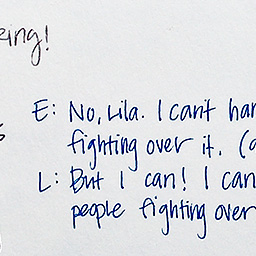 E: No, Lila. I can't
fighting over it.
L: But I can! I can
people fighting over